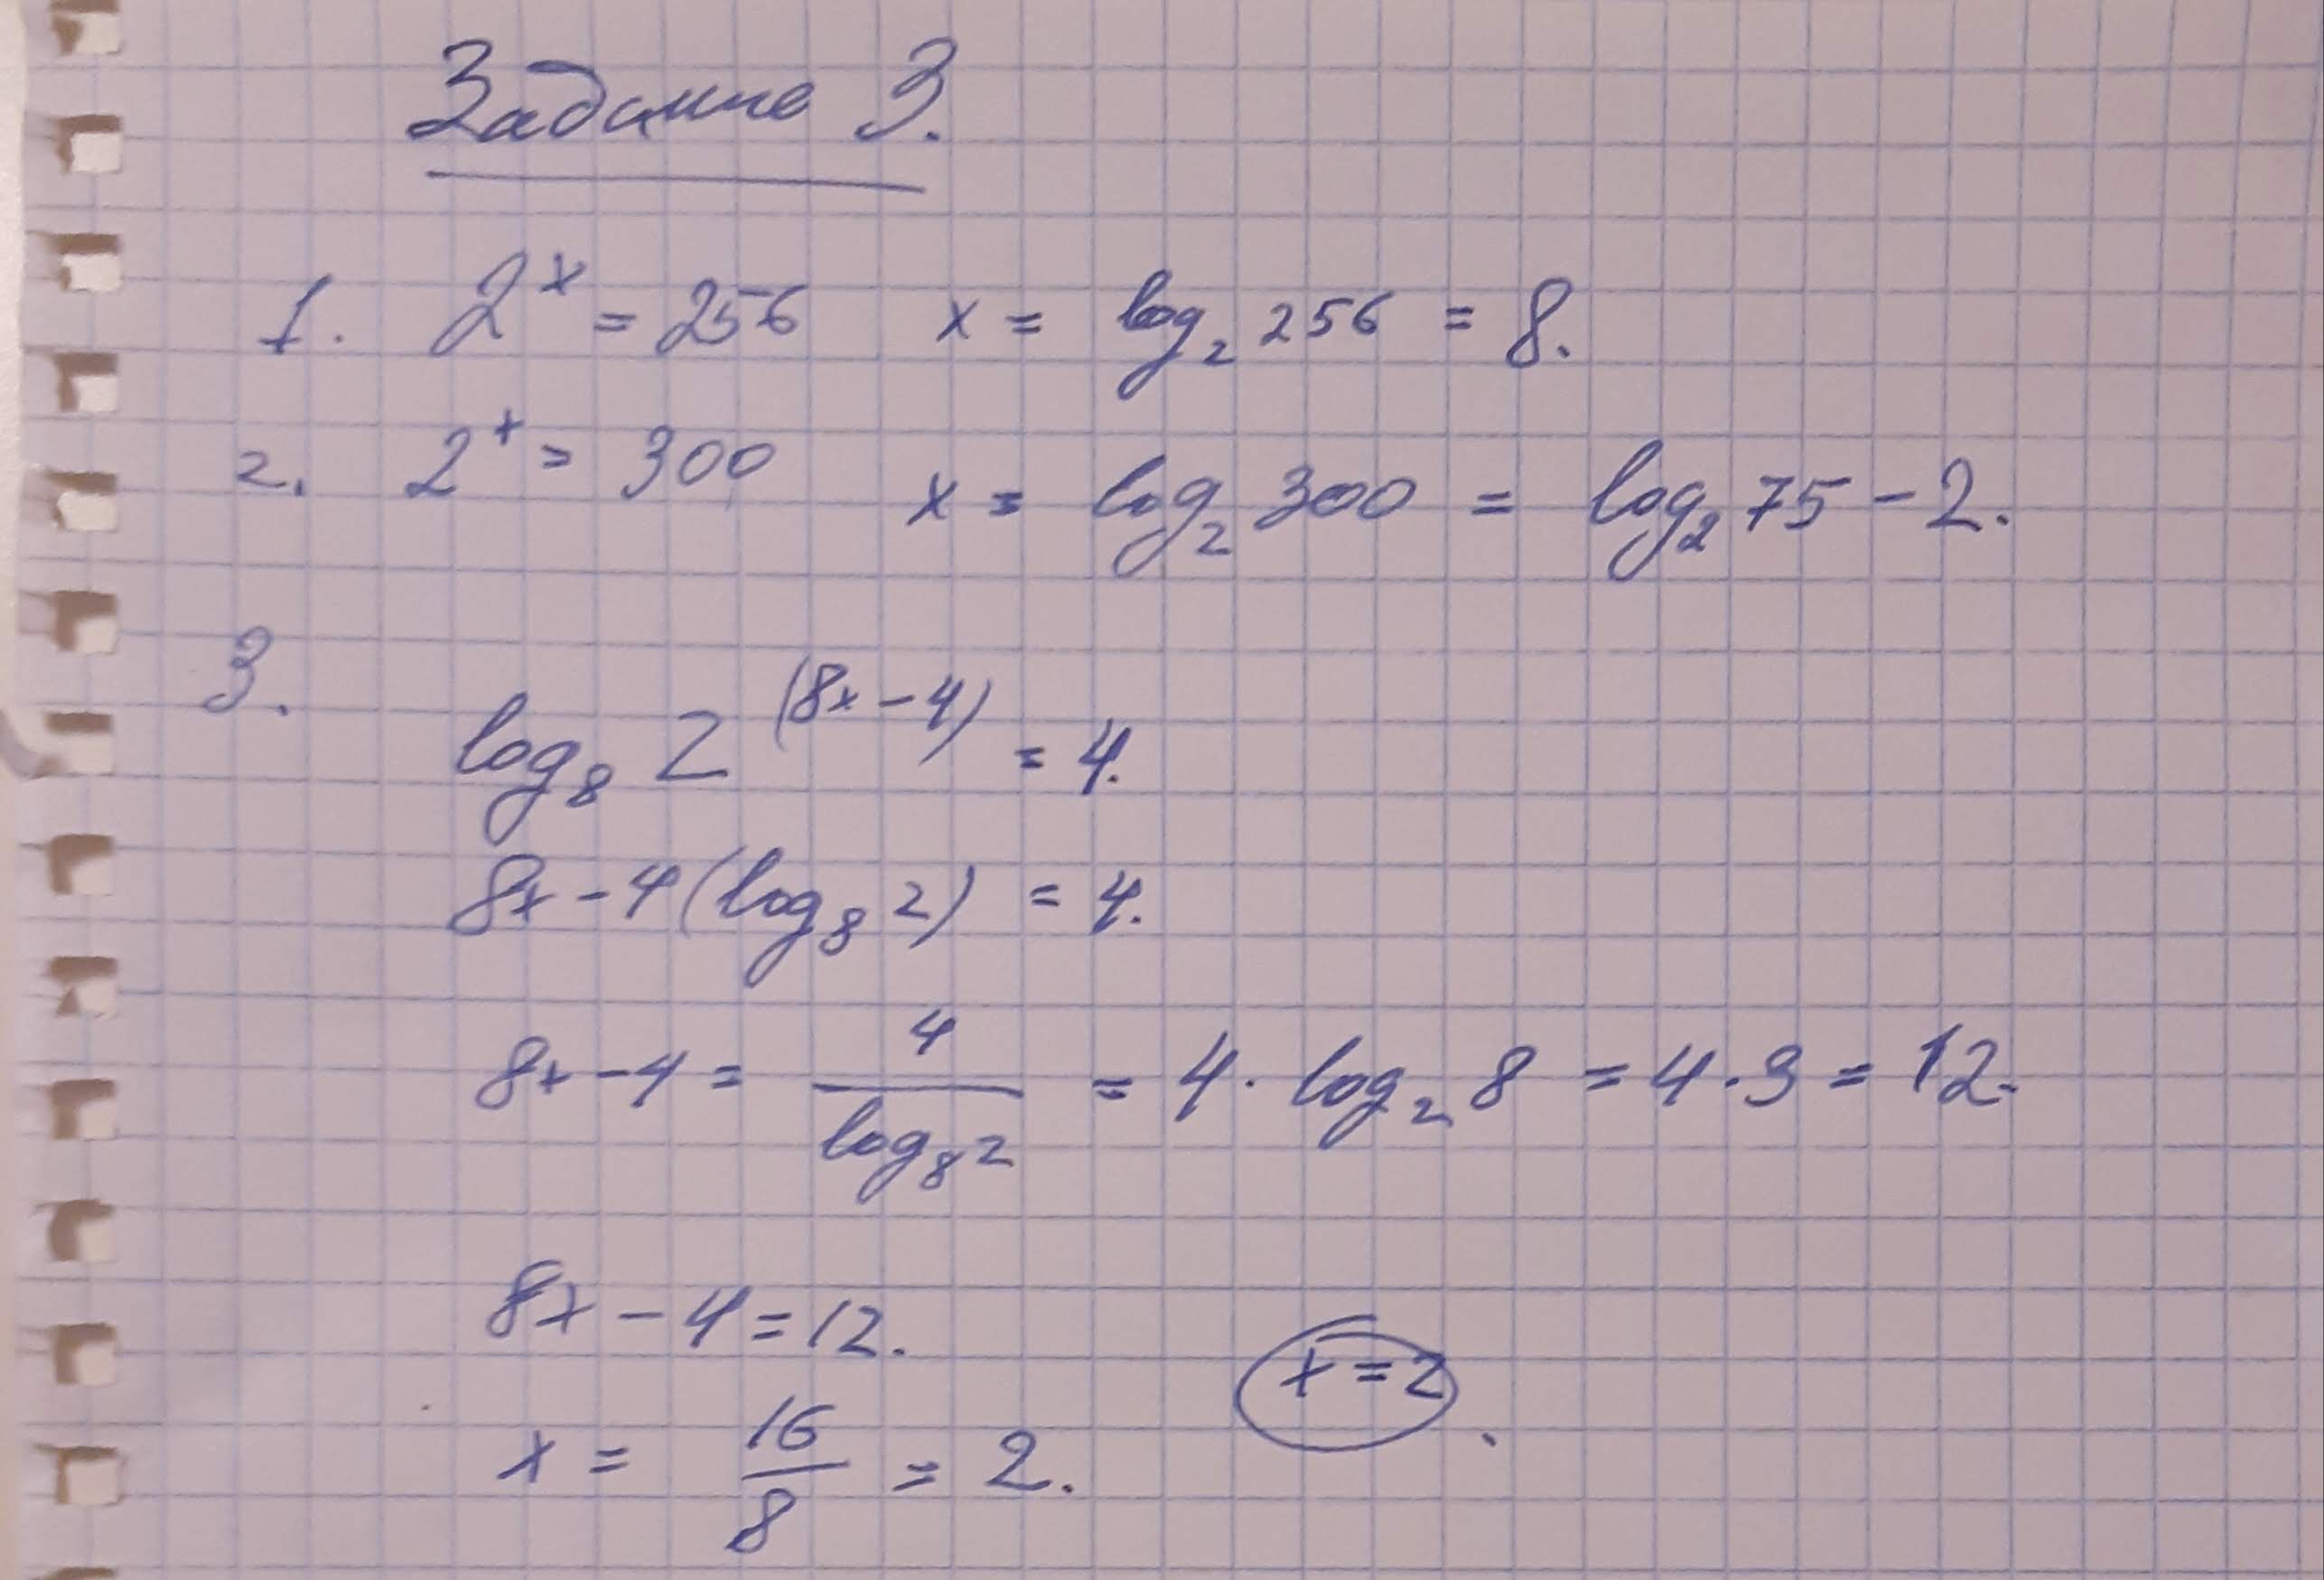 Задание 3.
1. 2^x = 256 x = log₂ 256 = 8.
2. 2^x = 300 x = log₂ 300 = log₂ 75 - 2.
3.
log₈ 2^(8x - 4) = 4.
8x - 4 (log₈ 2) = 4.
8x - 4 = 4 / log₈ 2 = 4 · log₂ 8 = 4 · 3 = 12.
8x - 4 = 12.
x = 16 / 8 = 2. x = 2.